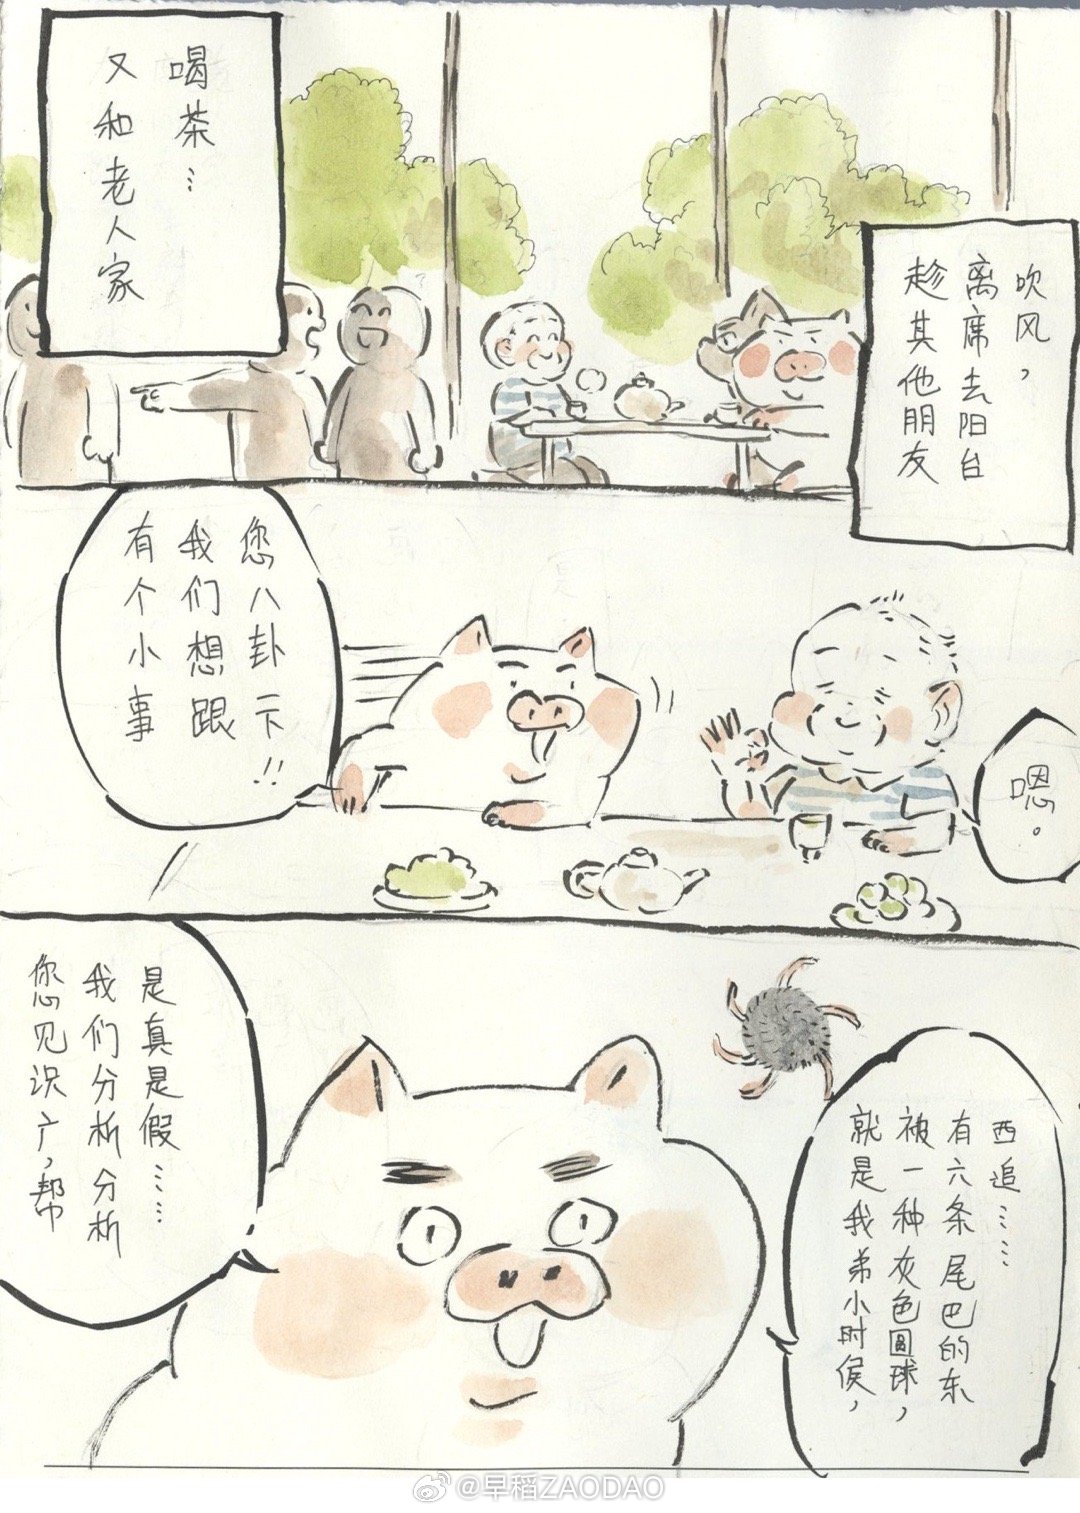 趁其他朋友
离席去阳台
吹风，
又和老人家
喝茶…
有个小事
我们想跟
您八卦一下!!
嗯。
就是我弟小时候，
被一种灰色圆球，
有六条尾巴的东
西追……
您见识广，帮
我们分析分析
是真是假……
@早稻ZAODAO